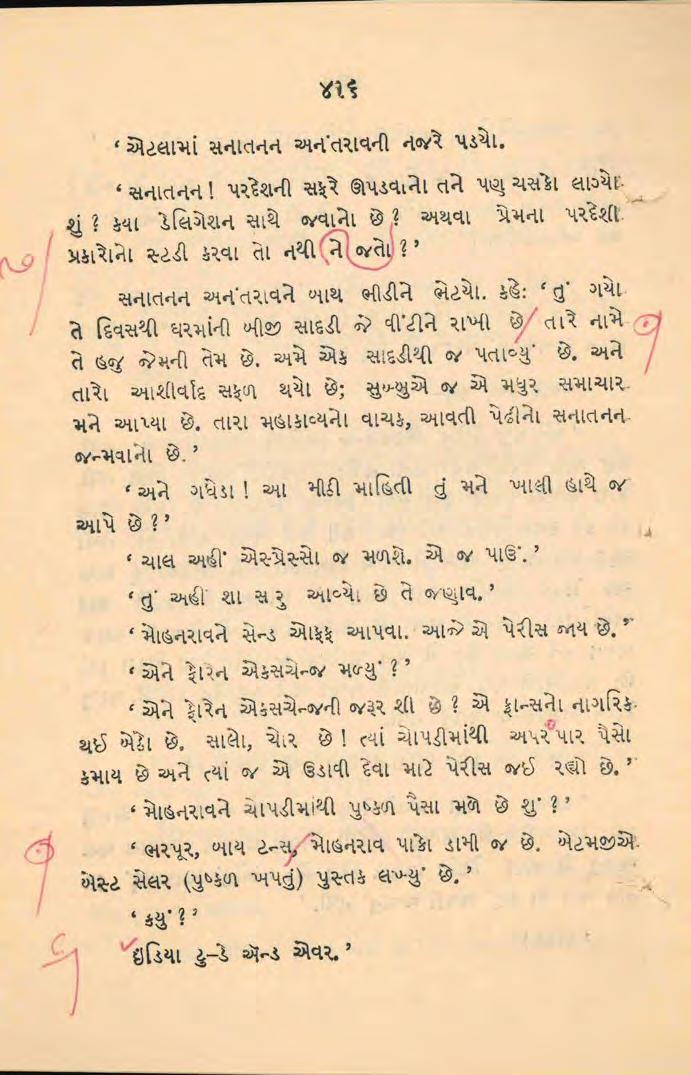 ૪૨૬
‘ એટલામાં સનાતનન અનંતરાવની નજરે પડયો.
‘ સનાતનન ! પરદેશની સફરે ઊપડવાનો તને પણ ચસકો લાગ્યો
શું ? કયા ડેલિગેશન સાથે જવાનો છે ? અથવા પ્રેમના પરદેશી
પ્રકારોનો સ્ટડી કરવા તો નથી ને જતો ? ’
સનાતનન અનંતરાવને બાથ ભીડીને ભેટયો. કહેઃ ‘ તું ગયો
તે દિવસથી ઘરમાંની બીજી સાદડી જે વીંટીને રાખી છે તારે નામે
તે હજુ જેમની તેમ છે. અમે એક સાદડીથી જ પતાવ્યું છે. અને
તારો આશીર્વાદ સફળ થયો છે; સુબ્બુએ જ એ મધુર સમાચાર
મને આપ્યા છે. તારા મહાકાવ્યનો વાચક, આવતી પેઢીનો સનાતનન
જન્મવાનો છે. ’
‘ અને ગધેડા ! આ મીઠી માહિતી તું મને ખાલી હાથે જ
આપે છે ? ’
‘ ચાલ અહીં એસ્પ્રેસ્સો જ મળશે. એ જ પાઉં. ’
‘ તું અહીં શા સરુ આવ્યો છે તે જણાવ. ’
‘ મોહનરાવને સેન્ડ ઓફફ આપવા. આજે એ પેરીસ જાય છે. ’
‘ એને ફોરેન એકસચેન્જ મળ્યું ? ’
‘ એને ફોરેન એકસચેન્જની જરૂર શી છે ? એ ફ્રાન્સનો નાગરિક
થઈ બેઠો છે. સાલો, ચોર છે ! ત્યાં ચોપડીમાંથી અપરંપાર પૈસો
કમાય છે અને ત્યાં જ એ ઉડાવી દેવા માટે પેરીસ જઈ રહ્યો છે. ’
‘ મોહનરાવને ચોપડીમાંથી પુષ્કળ પૈસા મળે છે શું ? ’
‘ ભરપૂર, બાય ટન્સ, મોહનરાવ પાકો ડામી જ છે. બેટમજીએ
બેસ્ટ સેલર (પુષ્કળ ખપતું) પુસ્તક લખ્યું છે. ’
‘ કયું ? ’
ઇંડિયા ટુ–ડે ઍન્ડ એવર. ’